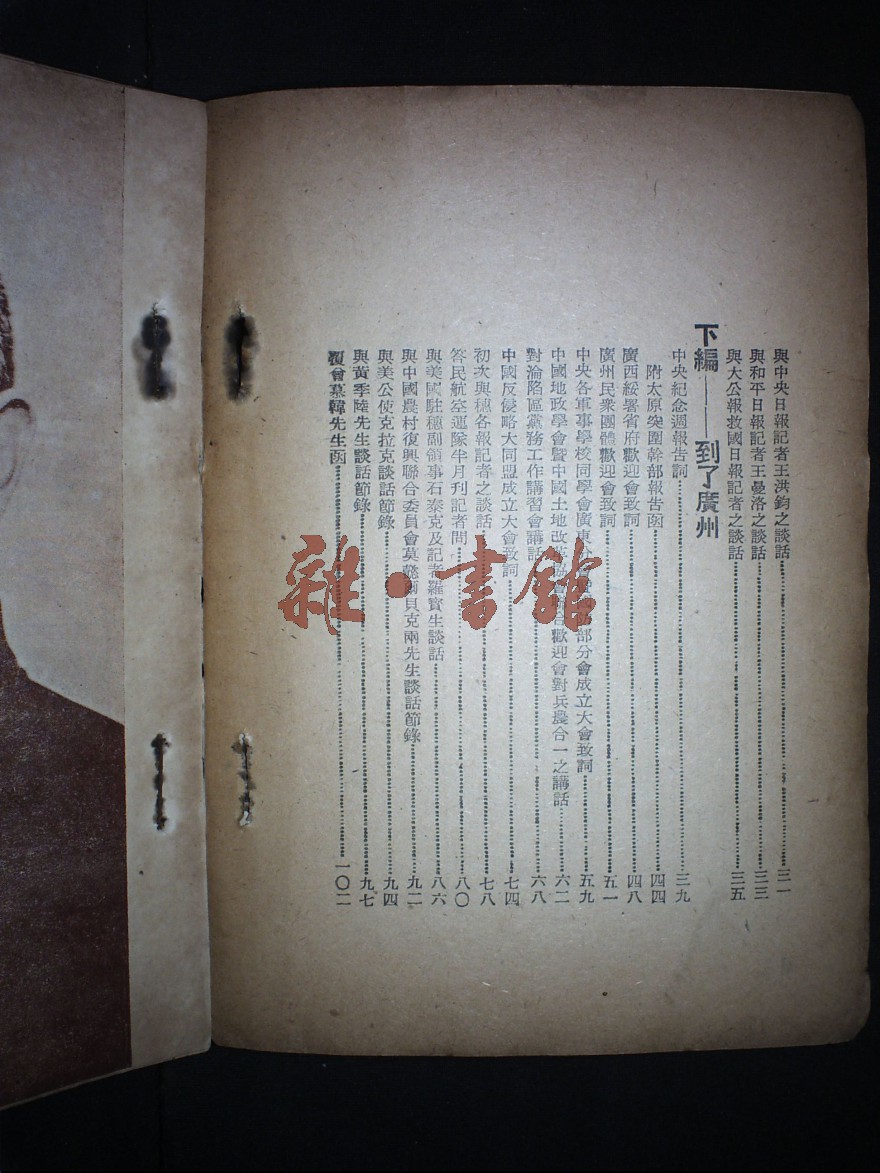 與中央日報記者王洪鈞之談話…………三一
與和平日報記者王曼洛之談話…………三三
與大公報救國日報記者之談話…………三五
下編——到了廣州
中央紀念週報告詞…………三九
附太原突圍幹部報告函…………四四
廣西綏署省府歡迎會致詞…………四八
廣州民衆團體歡迎會致詞…………五一
中央各軍事學校同學會廣東分會 部分會成立大會致詞…………五九
中國地政學會暨中國土地改革協會 歡迎會對兵農合一之講話…………六二
對淪陷區黨務工作講習會講話…………六八
中國反侵略大同盟成立大會致詞…………七四
初次與穗各報記者之談話…………七八
答民航空運隊半月刊記者問…………八〇
與美國駐穗副領事石泰克及記者羅賓生談話…………八六
與中國農村復興聯合委員會莫懿 貝克兩先生談話節錄…………九二
與美公使克拉克談話節錄…………九四
與黃季陸先生談話節錄…………九七
覆曾慕韓先生函…………一〇二
雜·書館